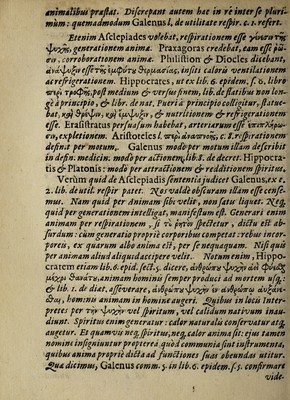 animalibus præstat. Discrepant autem hac in re inter se pluri-
mum: quemadmodum Galenus l. de utilitate respir. c. 1. refert.
Etenim Asclepiades volebat, respirationem esse γένεσιν τῆς
ψυχῆς, generationem animæ. Praxagoras credebat, eam esse ῥῶ-
σιν, corroborationem animæ. Philistion & Diocles dicebant,
ἀνάψυξιν esse τῆς ἐμφύτου θερμασίας, insiti caloris ventilationem
ac refrigerationem. Hippocrates, ut ex lib. 6. epidem. s. 6. libro
περὶ τροφῆς, post medium & versus finem, lib. de flatibus non lon-
gè à principio, & lib. de nat. Pueri à principio colligitur, statue-
bat, καὶ θρέψιν, καὶ ἔμψυξιν, & nutritionem & refrigerationem
esse. Erasistratus persuasum habebat, arteriarum esse ἐπιπλήρω-
σιν, expletionem. Aristoteles l. περὶ ἀναπνοῆς. c. 2. respirationem
definit per motum. Galenus modò per motum illam describit
in defin. medicin. modò per actionem, lib. 8. de decret. Hippocra-
tis & Platonis: modò per attractionem & redditionem spiritus.
Verùm quid de Asclepiadis sententia judicet Galenus, ex c.
2. lib. de util. respir. patet. Nos valdè obscuram illam esse cense-
mus. Nam quid per Animam sibi velit, non satis liquet. Neq;
quid per generationem intelligat, manifestum est. Generari enim
animam per respirationem, si τὸ ῥητὸν spectetur, dictu est ab-
surdum: cùm generatio propriè corporibus competat: rebus incor-
poreis, ex quarum albo anima est, per se nequaquam. Nisi quis
per animam aliud aliquid accipere velit. Notum enim, Hippo-
cratem etiam lib. 6. epid. sect. 5. dicere, ἀνθρώπου ψυχὴν ἀεὶ φύεσθαι
μέχρι θανάτου, animam hominis semper produci ad mortem usq;:
& lib. 1. de diæt, asseverare, ἀνθρώπου ψυχὴν ἐν ἀνθρώπῳ αὐξάνε-
σθαι, hominis animam in homine augeri. Quibus in locis Inter-
pretes per τὴν ψυχὴν vel spiritum, vel calidum nativum inau-
diunt. Spiritus enim generatur: calor naturalis conservatur atq;
augetur. Et quamvis neq; spiritus, neq; calor anima sit: ejus tamen
nomine insigniuntur propterea, quòd communia sint instrumenta,
quibus anima propriè dicta ad functiones suas obeundas utitur.
Qua de causa dicimus, Galenus comm. 5. in lib. 6. epidem. s. 5. confirmare
vide-